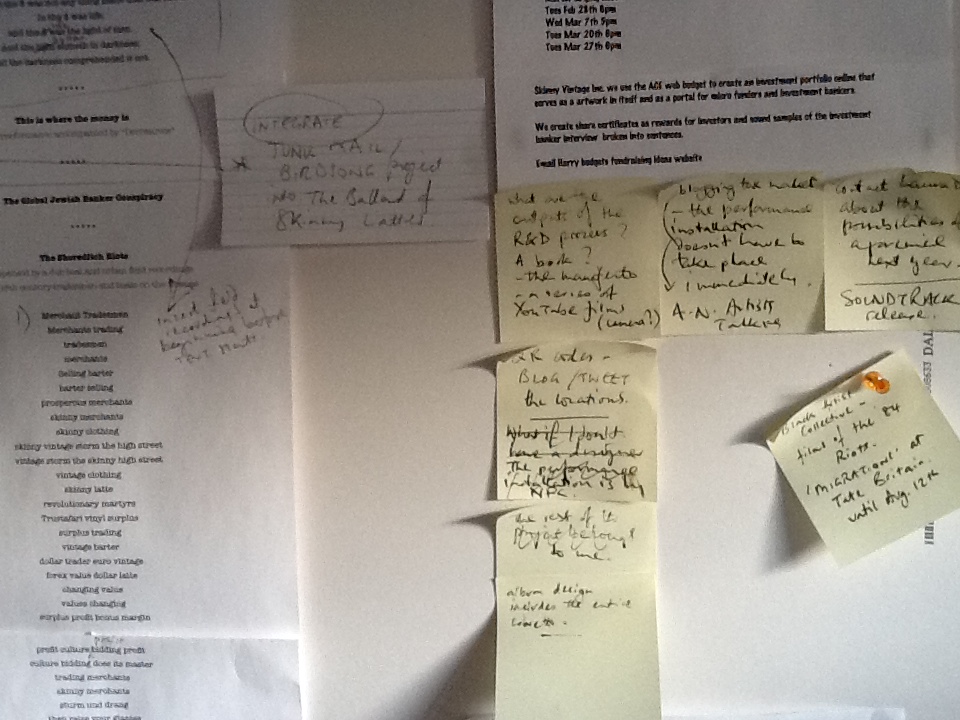 In this it was life
and the
and the light shineth in darkness
the darkness comprehended it not
.....
This is where the money is
.....
The Global Jewish Banker Conspiracy
.....
The Shoreditch Riots
1)
Merchant Tradesmen
Merchants trading
tradesmen
merchants
Selling barter
barter selling
prosperous merchants
skinny merchants
skinny clothing
skinny vintage storm the high street
vintage storm the skinny high street
vintage clothing
skinny latte
revolutionary martyrs
Trustafari vinyl surplus
surplus trading
vintage barter
dollar trader euro vintage
forex value dollar latte
changing value
values changing
surplus profit bonus margin
profit culture bidding profit
culture bidding does its master
trading merchants
skinny merchants
sturm und drang
then raise your glasses
recording of
beginning before
INTEGRATE
* JUNK MAIL /
BIRDSONG project
into The Ballad of
Skinny Lattes
Tues Feb 28th 6pm
Wed Mar 7th 5pm
Tues Mar 20th 6pm
Tues Mar 27th 6pm
Skinny Vintage Inc. we use the ACE web budget to create an investment portfolio online that
serves as a artwork in itself and as a portal for micro funders and investment bankers.
We create share certificates as rewards for investors and sound samples of the investment
banker interview broken into sentances.
Email Harry budgets fundraising ideas website
what are the
outputs of the
R&D process?
A book?
- the manifesto
- a series of
YouTube films
(camera?)
blogging the market
- the performance
installation
doesn't have to
take place
immediately.
A.N. Artists
Talking
contact
about the
possibilities of
a premier
next year.
SOUNDTRACK
release.
QR codes -
BLOG/TWEET
the locations.
What if I don't
have a designer
The performance
installation is by
NPC.
the rest of the
project belongs
to me.
album design
includes the entire
libretto.
Black Artist
Collective -
films of the '84
Riots.
'MIGRATIONS' at
Tate Britain.
until Aug. 12th